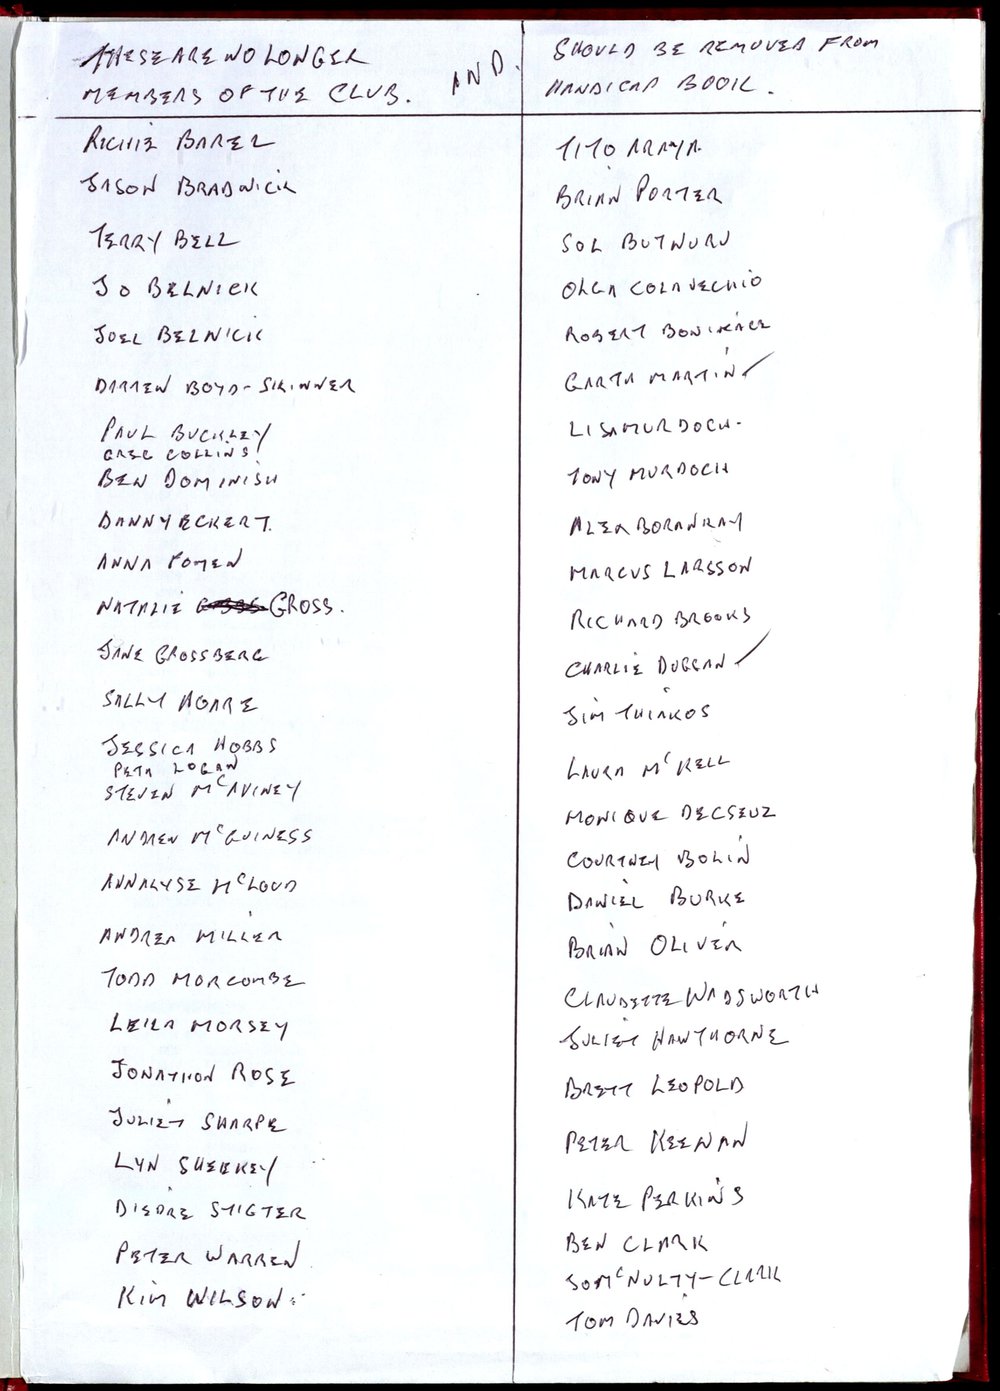 THESE ARE NO LONGER
MEMBERS OF THE CLUB.
AND.
SHOULD BE REMOVED FROM
HANDICAP BOOK.
RICHIE BAREL
JASON BRADWICK
TERRY BELL
JO BELNICK
JOEL BELNICK
DARREN BOYD-SKINNER
PAUL BUCKLEY
GREG COLLINS
BEN DOMINISH
DANNY ECKERT.
ANNA
NATALIE GROSS.
JANE GROSSBERG
SALLY HOARE
JESSICA HOBBS
PETA LOGAN
STEVEN McAVINEY
ANDREW McGUINESS
ANNALYSE McLOUD
ANDREA MILLER
TODD MORCOMBE
LEILA MORSEY
JONATHON ROSE
JULIET SHARPE
LYN
DIEDRE STIGTER
PETER WARREN
KIM WILSON
TITO ARAYA
BRIAN PORTER
SOL
OLGA COLAVECHIO
ROBERT BONIFACE
GARTH MARTIN ✓
LISA MURDOCH.
TONY MURDOCH
ALEX
MARCUS LARSSON
RICHARD BROOKS
CHARLIE DUGGAN ✓
JIM THIAKOS
LAURA McKELL
MONIQUE DECSEUZ
COURTNEY BOLIN
DANIEL BURKE
BRIAN OLIVER
CLAUDETTE WADSWORTH
JULIET HAWTHORNE
BRETT LEOPOLD
PETER KEENAN
KATE PERKINS
BEN CLARK
JO McNULTY-CLARK
TOM DAVIES